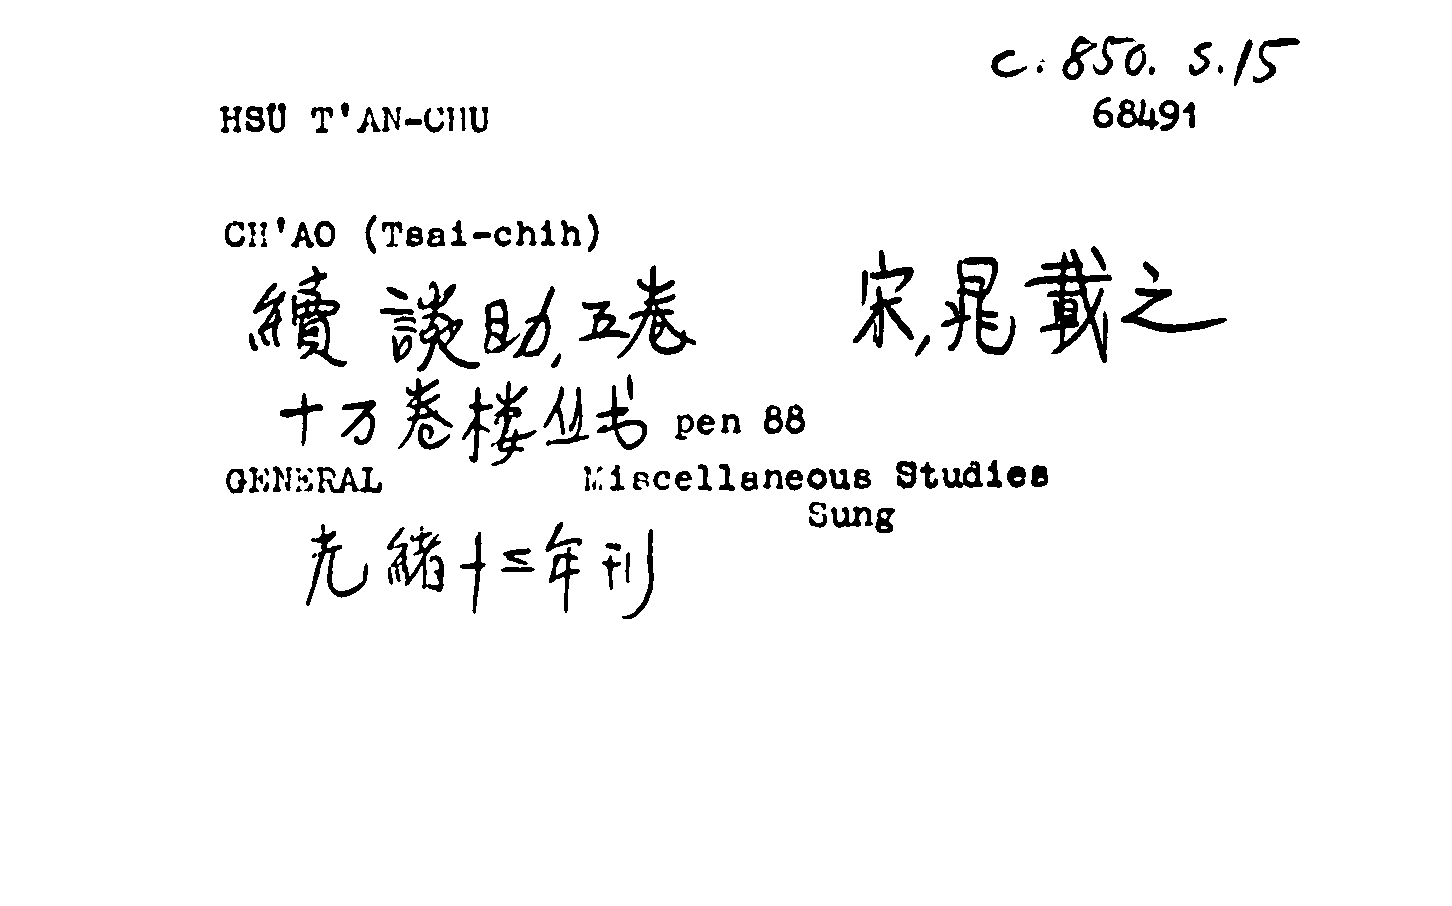 C. 850. S. 15
HSÜ T'AN-CHU
68491
CH'AO (Tsai-chih)
續談助, 五卷 宋, 晁載之
十万卷楼丛书 pen 88
GENERAL Miscellaneous Studies
Sung
光緒十三年刊